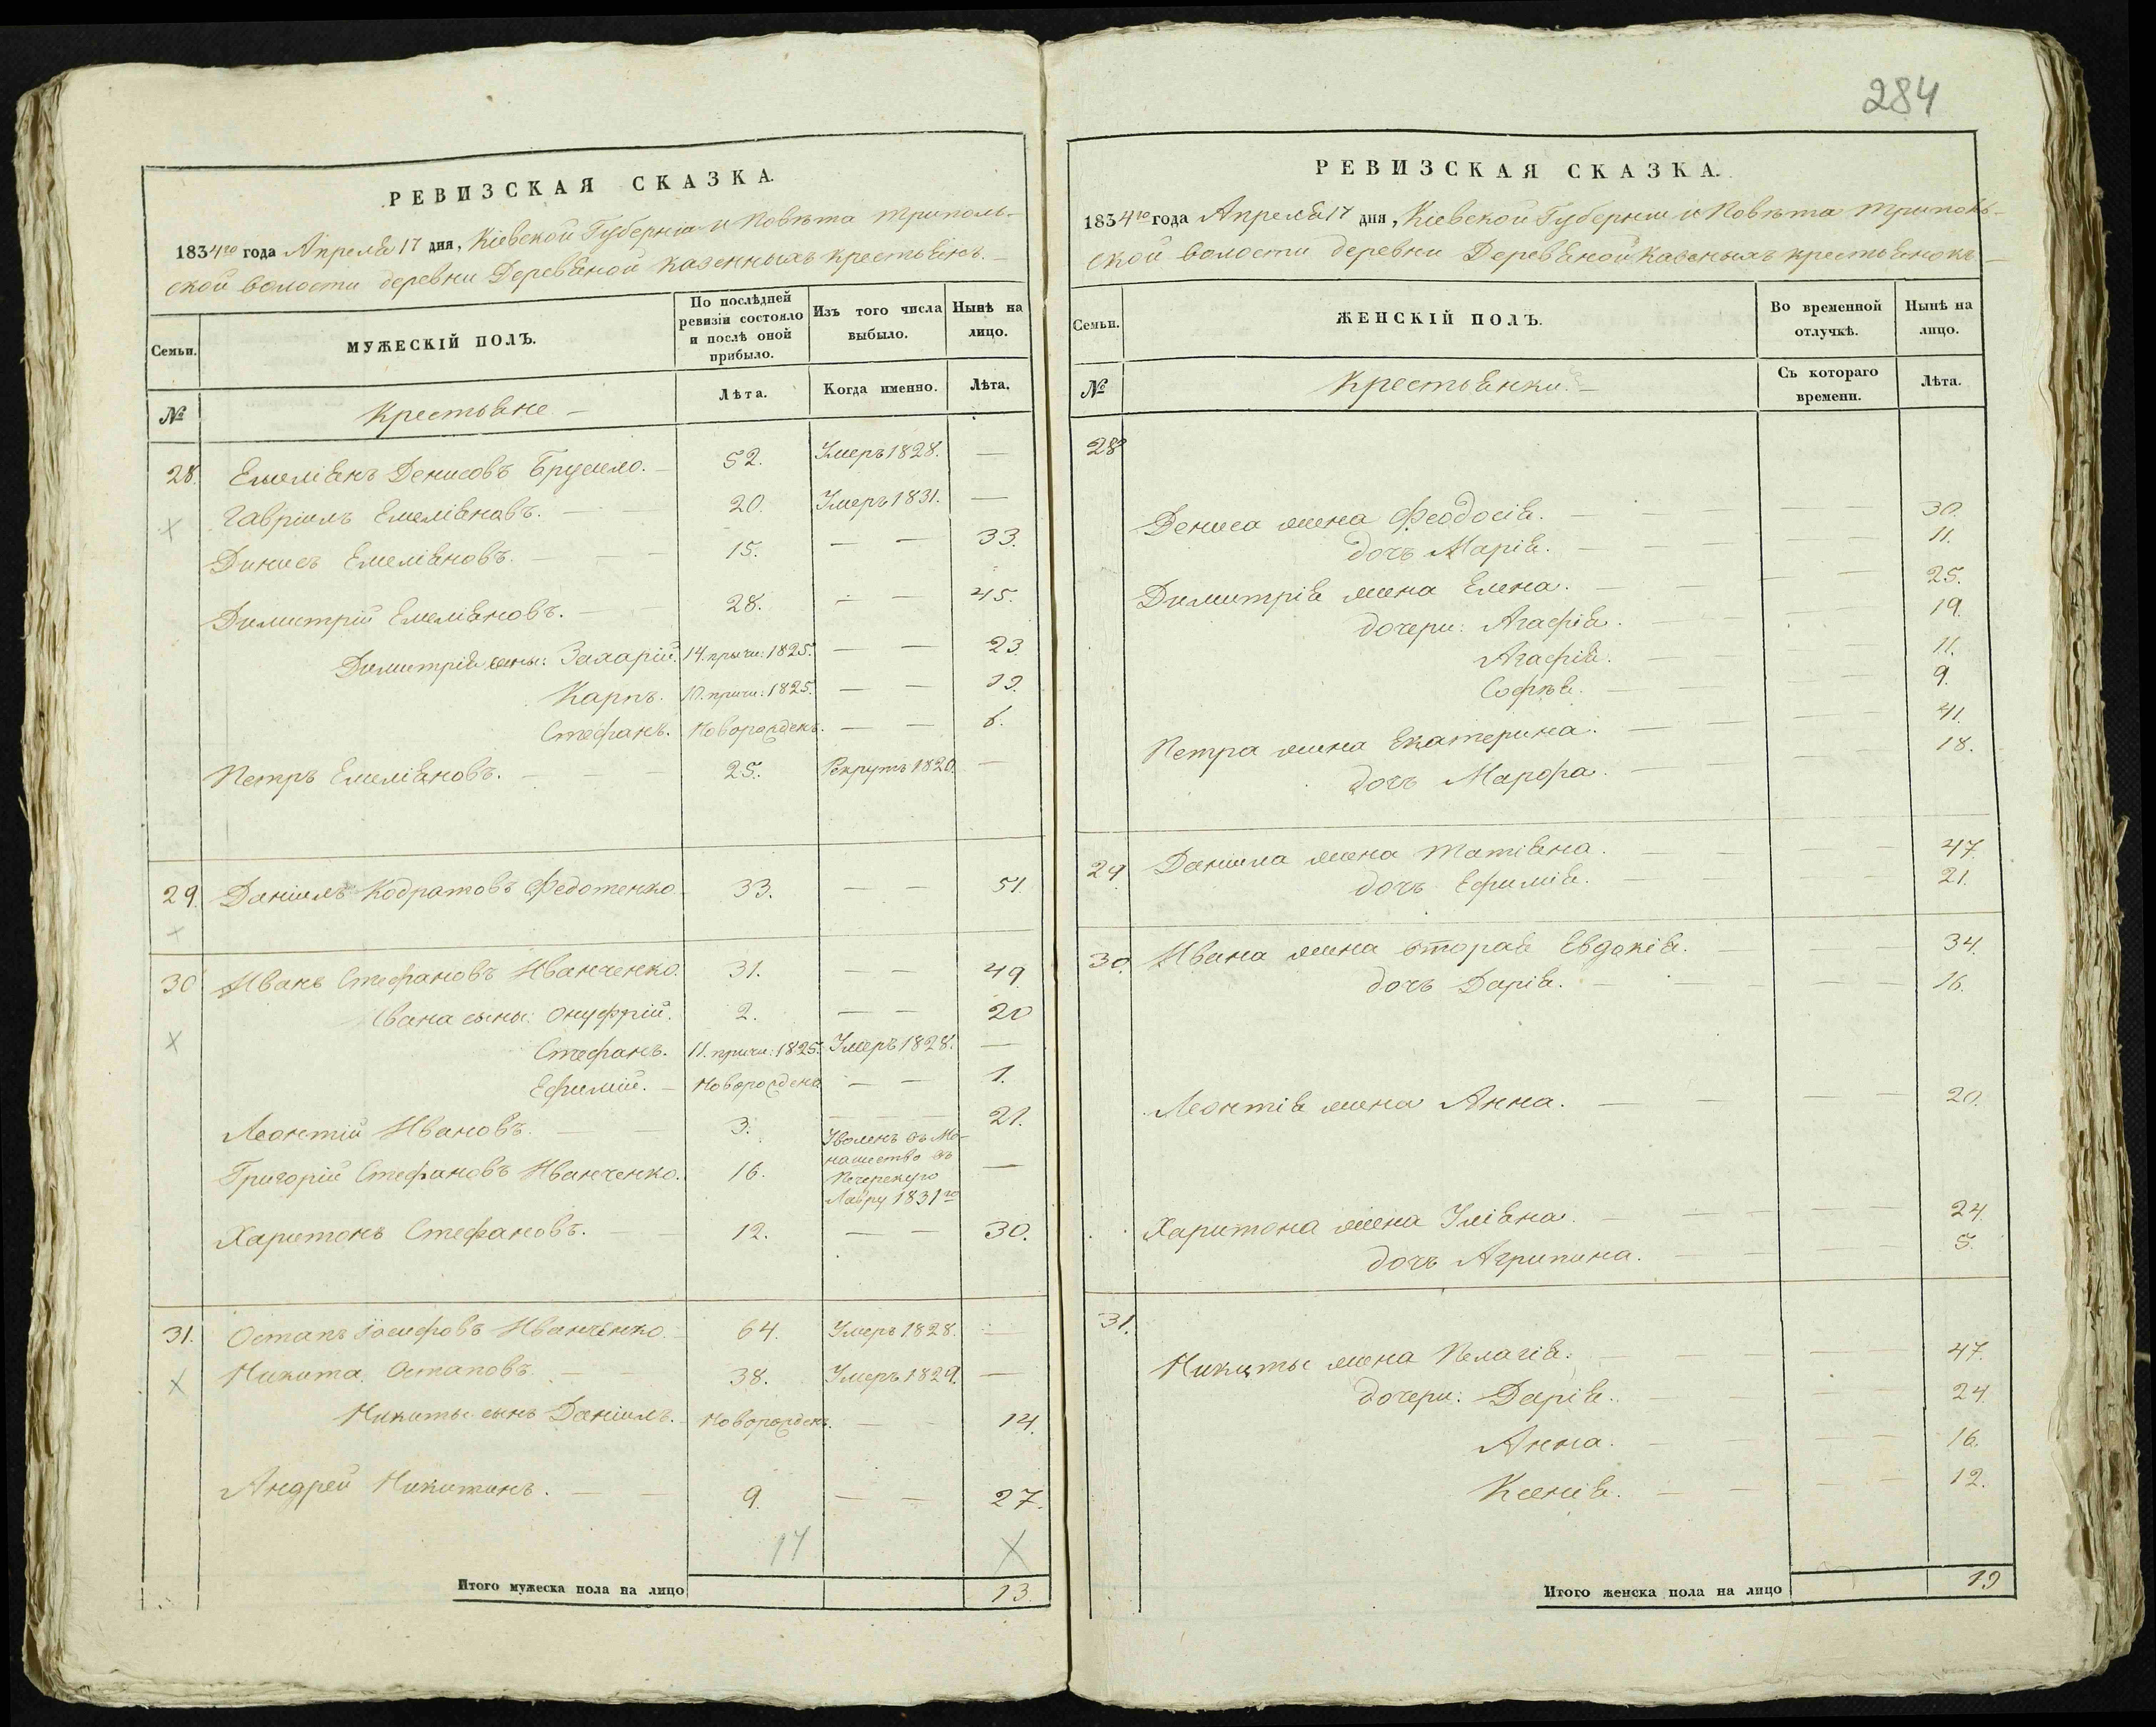 284
РЕВИЗСКАЯ СКАЗКА.
1834го года Апреля 17 дня, Кіевской Губерніи и Повѣта Триполь-
ской волости деревни Деревяной казенныхъ крестьянъ. —
Семьи.
МУЖЕСКІЙ ПОЛЪ.
По послѣдней ревизіи состояло и послѣ оной прибыло.
Изъ того числа выбыло.
Нынѣ на лицо.
№
Крестьяне —
Лѣта.
Когда именно.
Лѣта.
28. Емеліянъ Денисовъ Брусило. — 52. Умеръ 1828. —
Гавріилъ Емеліяновъ. — — 20. Умеръ 1831. —
Динисъ Емеліяновъ. — — — 15. — — 33.
Димитрій Емеліяновъ. — — 28. — — 45.
Димитрія сыны: Захарій. 14. причи: 1825. — — 23.
Карпъ. 10. причи: 1825. — — 19.
Стефанъ. Новорожденъ. — — 6.
Петръ Емеліяновъ. — — — 25. Рекрутъ 1820. —
29. Даніилъ Кодратовъ Федотенко 33. — — 51.
30 Иванъ Стефановъ Иванченко. 31. — — 49
Ивана сыны: Онуфрій. 2. — — 20
Стефанъ. 11. причи: 1825. Умеръ 1828. —
Ефимій. — Новорожденъ — — 1.
Леонтій Ивановъ. — — 3. — — — 21.
Григорій Стефановъ Иванченко. 16. Уволенъ въ Мо-
нашество въ
Печерскую
Лавру 1831го —
Харитонъ Стефановъ. — — 12. — — 30.
31. Остапъ Іосифовъ Иванченко. — 64. Умеръ 1828. —
Никита Остаповъ. — — 38. Умеръ 1829. —
Никиты сынъ Даніилъ. — Новорожденъ. — — 14.
Андрей Никитинъ. — — 9. — — 27.
17
Итого мужеска пола на лицо 13.
РЕВИЗСКАЯ СКАЗКА.
1834го года Апреля 17 дня, Кіевской Губерніи и Повѣта Триполь-
ской волости деревни Деревяной казеныхъ крестьянокъ —
Семьи.
ЖЕНСКІЙ ПОЛЪ.
Во временной отлучкѣ.
Нынѣ на лицо.
№
Крестьянки. —
Съ котораго времени.
Лѣта.
28
Дениса жена Феодосія. — — — — — 30.
дочь Марія. — — — — 11.
Димитрія жена Елена. — — — — 25.
дочери: Агафія. — — — — 19.
Агафія. — — — 11.
Софія. — — — — 9.
Петра жена Екатерина. — — — — 41.
дочь Марфа. — — — — 18.
29 Даніила жена Татіяна. — — — — 47
дочь Ефимія. — — — — 21.
30. Ивана жена вторая Евдокія. — — — — 34.
дочь Дарія. — — — — — 16.
Леонтія жена Анна. — — — — 20.
Харитона жена Уліяна. — — — — — 24.
дочь Агрипина. — — — — 5.
31.
Никиты жена Пелагія: — — — — 47.
дочери: Дарія. — — — — 24.
Анна. — — — — 16.
Ксенія. — — — — 12.
Итого женска пола на лицо 19